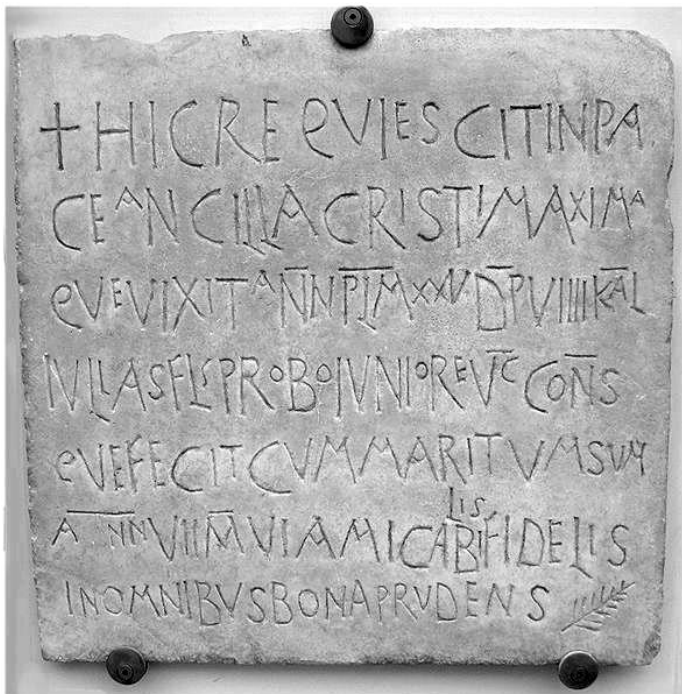 + HIC REQVIESCIT IN PA
CE ANCILLA CRISTI MAXIMA
QVE VIXIT ANN PLM XXV DP VIIII KAL
IVLIAS FL PROBO IVNIORE VC CONS
QVE FECIT CVM MARITVM SVM
ANN VII M VI AMICABILIS FIDELIS
IN OMNIBVS BONA PRVDENS